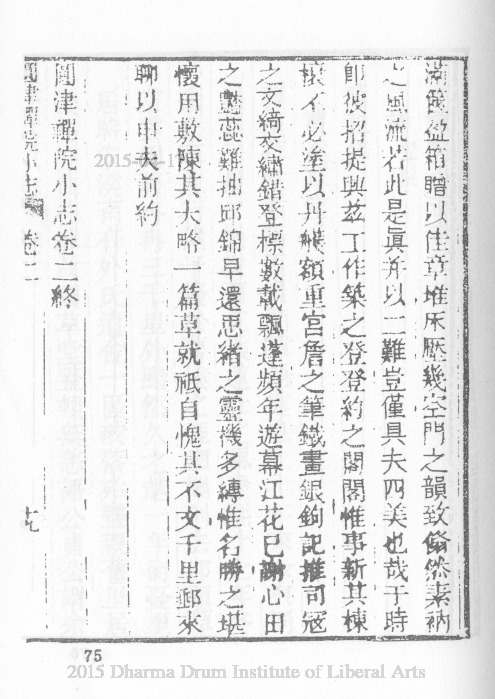 滿篋盈箱贈以佳章堆床壓几空門之韻致翛然素衲
之風流若此是眞并以二難豈僅具夫四美也哉于時
卽彼招提興茲工作築之登登約之閣閣惟事新其棟
㮰不必塗以丹𧹞額重宮詹之筆鐵畫銀鉤記推司冠
之文綺交繡錯登標數載飄蓬頻年遊幕江花已謝心田
之艷蕊難抽邱錦早還思緒之靈機多縛惟名勝之堪
懷用敷陳其大略一篇草就祗自愧其不文千里郵來
聊以申夫前約
圓津禪院小志卷二終
圓津禪院小志 卷二 十九
75
2015 Dharma Drum Institute of Liberal Arts